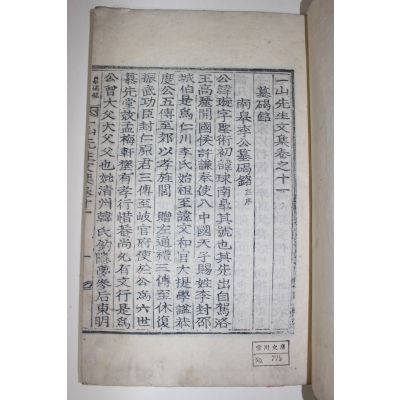 一山先生文集卷之十一
墓碣銘
南皐李公墓碣銘
公諱字初諱球南皐其號也其先出自駕洛
王高麗開國侯許謙奉使入中國天子賜姓李封邵
城伯是爲仁川李氏始祖至諱文和官大提學諡恭
度公五傳至郊以孝旌閭 贈左通禮三傳至休復
振武功臣封仁原君三傳至岐官府使於公爲六世
慕先堂效孟梅軒有孝行惜菴尚允有文行是爲
公曾大父大父父也妣淸州韓氏釣隱夢參后東明
墓碣銘
一山先生文集卷十一
文庫
No. 776